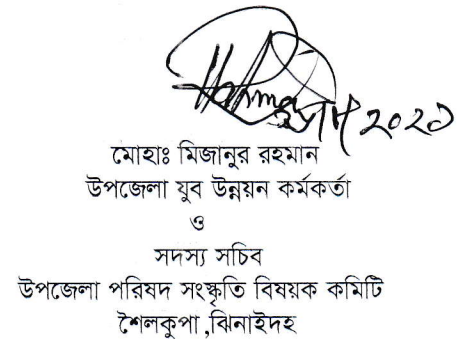 ২০২১
মোহাঃ মিজানুর রহমান
উপজেলা যুব উন্নয়ন কর্মকর্তা
ও
সদস্য সচিব
উপজেলা পরিষদ সংস্কৃতি বিষয়ক কমিটি
শৈলকুপা ,ঝিনাইদহ